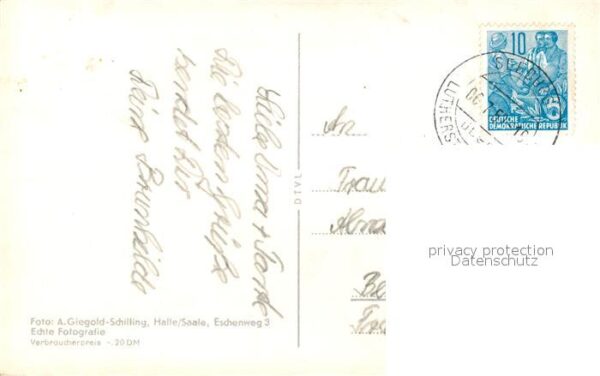 Liebe Oma + Tante
Die besten Grüße
sendet Dir
Deine Brunhilde
An
Frau
10
DEUTSCHE
DEMOKRATISCHE REPUBLIK
LUTHERS
privacy protection
Datenschutz
Foto: A. Giegold-Schilling, Halle/Saale, Eschenweg 3
Echte Fotografie
Verbraucherpreis -.20 DM